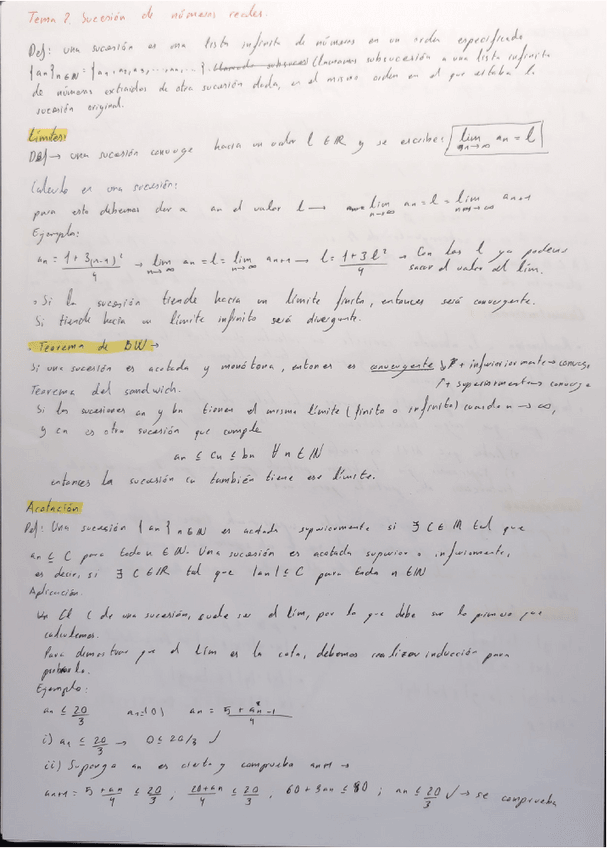 Tema 2. Sucesión de números reales.
Def: una sucesión es una lista infinita de números en un orden especificado
{an}n∈N = {a1, a2, a3, ..., an, ...}. (llamamos subsucesión a una lista infinita
de números extraídos de otra sucesión dada, en el mismo orden en el que estaba la
sucesión original.
Límites:
Def → una sucesión converge hacia un valor l ∈ IR y se escribe: lim an = l
n→∞
Calculo en una sucesión:
para esto debemos dar a an el valor l → lim an = l = lim an+1
n→∞ n→∞
Ejemplo:
an = 1 + 3(n-1)² / 4 → lim an = l = lim an+1 → l = 1 + 3l² / 4 → Con las l ya podemos
n→∞ n→∞ sacar el valor del lim.
Si la sucesión tiende hacia un límite finito, entonces será convergente.
Si tiende hacia un límite infinito será divergente.
Teorema de BW →
Si una sucesión es acotada y monótona, entonces es convergente ↘ + inferiormente → converge
↗ + superiormente converge
Teorema del sandwich.
Si las sucesiones an y bn tienen el mismo límite (finito o infinito) cuando n → ∞,
y cn es otra sucesión que cumple
an ≤ cn ≤ bn ∀ n ∈ IN
entonces la sucesión cn también tiene ese límite.
Acotación
Def: Una sucesión {an} n∈N es acotada superiormente si ∃ C ∈ IR tal que
an ≤ C para toda n ∈ IN. Una sucesión es acotada superior o inferiormente,
es decir, si ∃ C ∈ IR tal que |an| ≤ C para toda n ∈ IN
Aplicación.
C de una sucesión, suele ser el lim, por lo que debe ser lo primero que
calculemos.
Para demostrar que el lim es la cota, debemos realizar inducción para
probarlo.
Ejemplo:
an ≤ 20/3 an = 5 + an-1 / 4
i) a1 ≤ 20/3 → 0 ≤ 20/3 ✓
ii) Suponga an es cierto y comprueba an+1 →
an+1 = 5 + an / 4 ≤ 20/3 ; 20+an / 4 ≤ 20/3 , 60 + 3an ≤ 80 ; an ≤ 20/3 ✓ → se comprueba